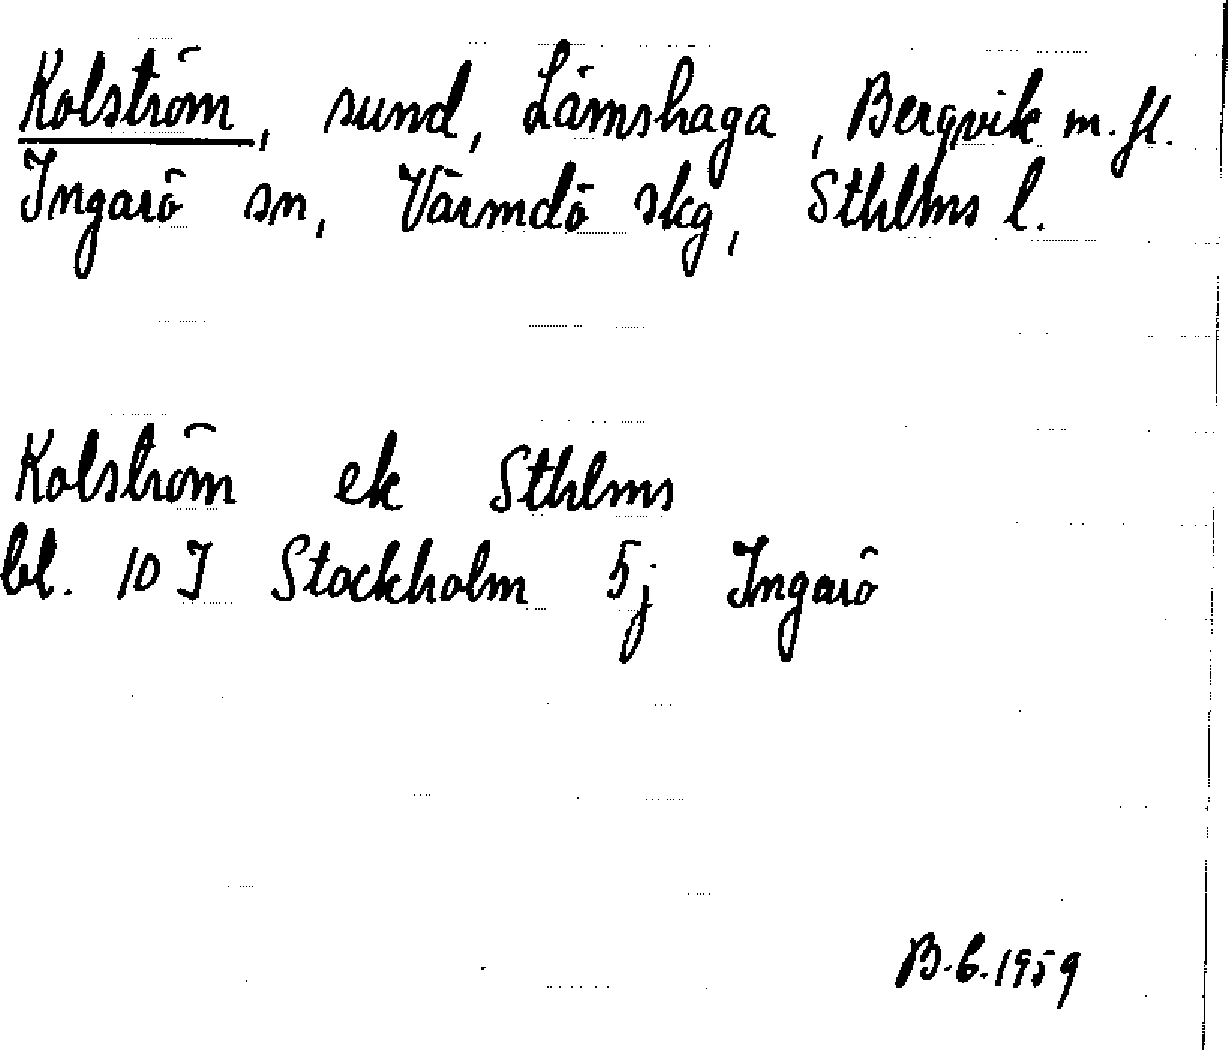 Kolström, sund, Lämshaga, Bergvik m. fl.
Ingarö sn, Värmdö skg, Sthlms l.
Kolström ek Sthlms
bl. 10 I Stockholm 5j Ingarö
B.C. 1959